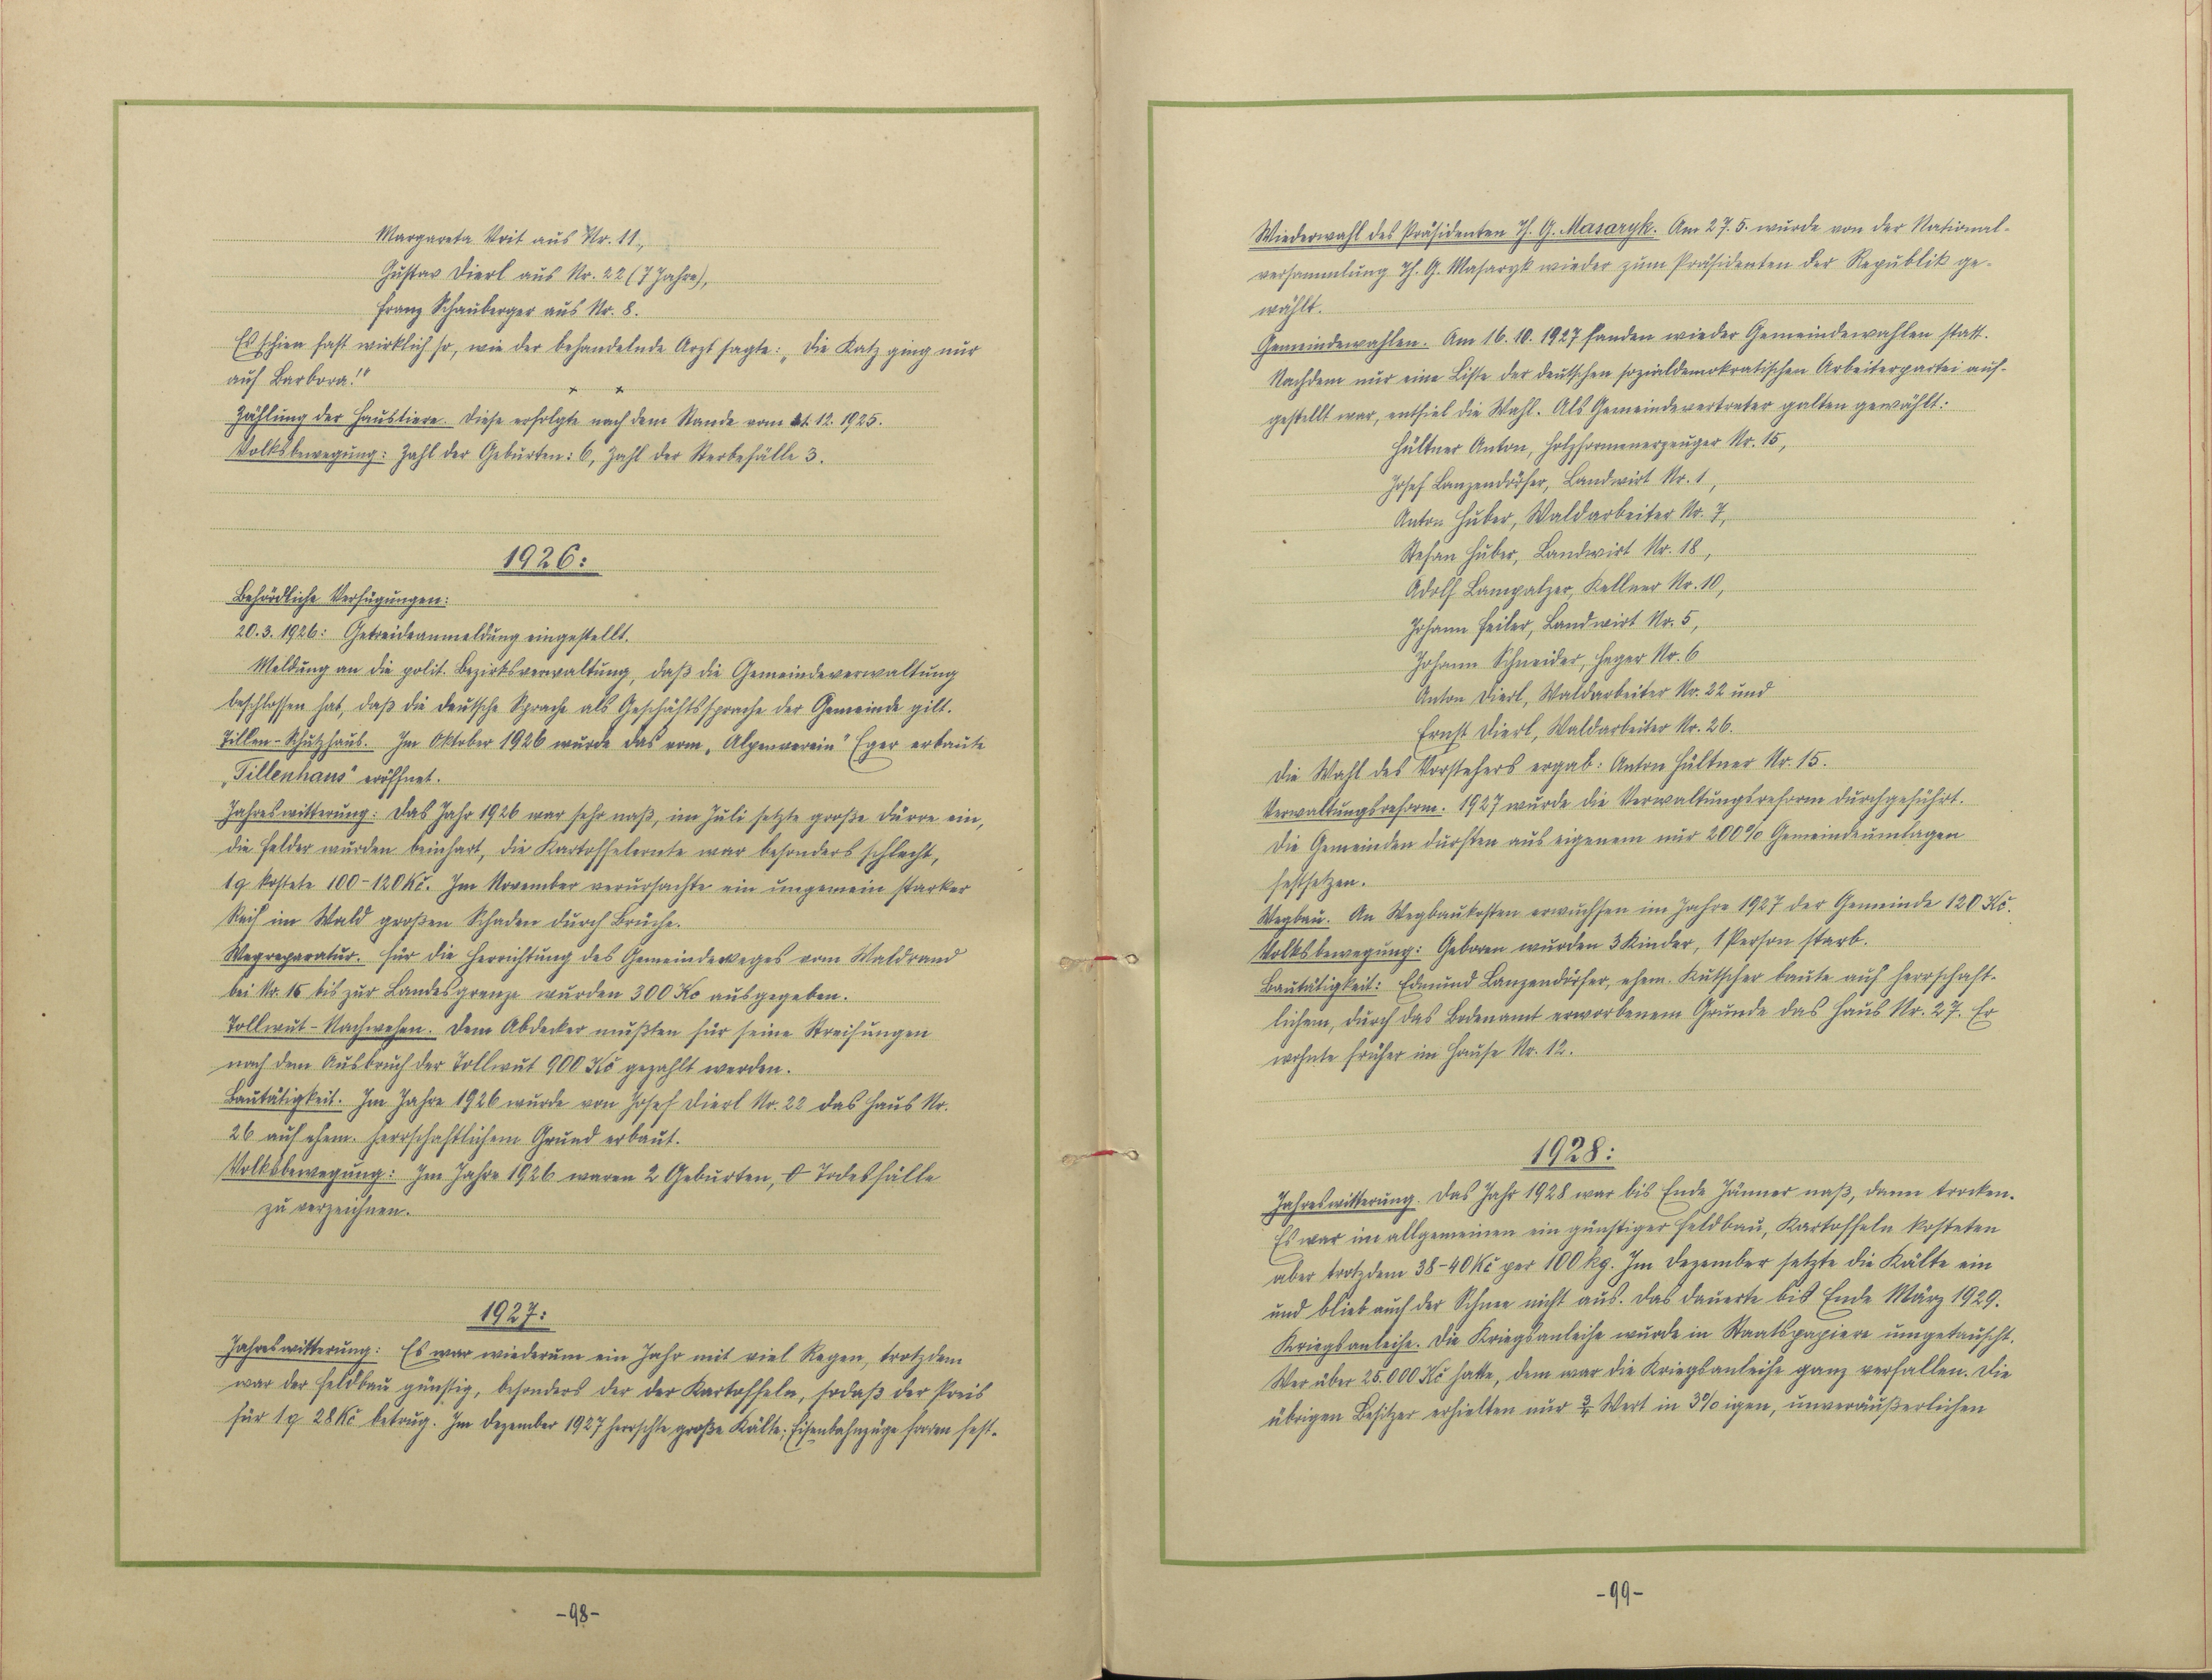 Margareta Veit aus Nr. 11,
Gustav Dierl aus Nr. 22 (7 Jahre),
Franz Schauberger aus Nr. 8.
Es schien fast wirklich so, wie der behandelnde Arzt sagte: „Die Katz ging nur
auf Barbora!"
x x
Zählung der Haustiere. Diese erfolgte nach dem Stande vom 31. 12. 1925.
Volksbewegung: Zahl der Geburten: 6, Zahl der Sterbefälle 3.
1926:
Behördliche Verfügungen:
20. 3. 1926: Getreideanmeldung eingestellt.
Meldung an die polit. Bezirksverwaltung, daß die Gemeindeverwaltung
beschlossen hat, daß die deutsche Sprache als Geschäftssprache der Gemeinde gilt.
Tillen-Schutzhaus. Im Oktober 1926 wurde das vom „Alpenverein" Eger erbaute
„Tillenhaus" eröffnet.
Jahreswitterung: Das Jahr 1926 war sehr naß, im Juli setzte große Dürre ein,
die Felder wurden beinhart, die Kartoffelernte war besonders schlecht,
1q kostete 100-120 Kč. Im November verursachte ein ungemein starker
Reif im Wald großen Schaden durch Brüche.
Wegreparatur. Für die Herrichtung des Gemeindeweges vom Waldrand
bei Nr. 15 bis zur Landesgrenze wurden 300 Kč ausgegeben.
Tollwut-Nachwehen. Dem Abdecker mußten für seine Streifungen
nach dem Ausbruch der Tollwut 900 Kč gezahlt werden.
Bautätigkeit. Im Jahre 1926 wurde von Josef Dierl Nr. 22 das Haus Nr.
26 auf ehem. herrschaftlichem Grund erbaut.
Volksbewegung: Im Jahre 1926 waren 2 Geburten, 0 Todesfälle
zu verzeichnen.
1927:
Jahreswitterung: Es war wiederum ein Jahr mit viel Regen, trotzdem
war der Feldbau günstig, besonders der der Kartoffeln, sodaß der Preis
für 1q 28 Kč betrug. Im Dezember 1927 herrschte große Kälte; Eisenbahnzüge froren fest.
-98-
Wiederwahl des Präsidenten Th. G. Masaryk. Am 27. 5. wurde von der National-
versammlung Th. G. Masaryk wieder zum Präsidenten der Republik ge-
wählt.
Gemeindewahlen. Am 16. 10. 1927 fanden wieder Gemeindewahlen statt.
Nachdem nur eine Liste der deutschen sozialdemokratischen Arbeiterpartei auf-
gestellt war, entfiel die Wahl. Als Gemeindevertreter galten gewählt:
Hültner Anton, Holzformenerzeuger Nr. 15,
Josef Lanzendörfer, Landwirt Nr. 1,
Anton Huber, Waldarbeiter Nr. 7,
Stefan Huber, Landwirt Nr. 18,
Adolf Lampalzer, Kellner Nr. 10,
Johann Feiler, Landwirt Nr. 5,
Johann Schneider, Heger Nr. 6
Anton Dierl, Waldarbeiter Nr. 22 und
Ernst Dierl, Waldarbeiter Nr. 26.
Die Wahl des Vorstehers ergab: Anton Hültner Nr. 15.
Verwaltungsreform. 1927 wurde die Verwaltungsreform durchgeführt.
Die Gemeinden durften aus eigenem nur 200% Gemeindeumlagen
festsetzen.
Wegbau. An Wegbaukosten erwuchsen im Jahre 1927 der Gemeinde 120 Kč.
Volksbewegung: Geboren wurden 3 Kinder, 1 Person starb.
Bautätigkeit: Edmund Lanzendörfer, ehem. Kutscher baute auf herrschaft-
lichem, durch das Bodenamt erworbenem Grunde das Haus Nr. 27. Er
wohnte früher im Hause Nr. 12.
1928:
Jahreswitterung. Das Jahr 1928 war bis Ende Jänner naß, dann trocken.
Es war im allgemeinen ein günstiger Feldbau, Kartoffeln kosteten
aber trotzdem 38-40 Kč per 100 kg. Im Dezember setzte die Kälte ein
und blieb auch der Schnee nicht aus. Das dauerte bis Ende März 1929.
Kriegsanleihe. Die Kriegsanleihe wurde in Staatspapiere umgetauscht.
Wer über 25.000 Kč hatte, dem war die Kriegsanleihe ganz verfallen. Die
übrigen Besitzer erhielten nur ¾ Wert in 3%igen, unveräußerlichen
-99-